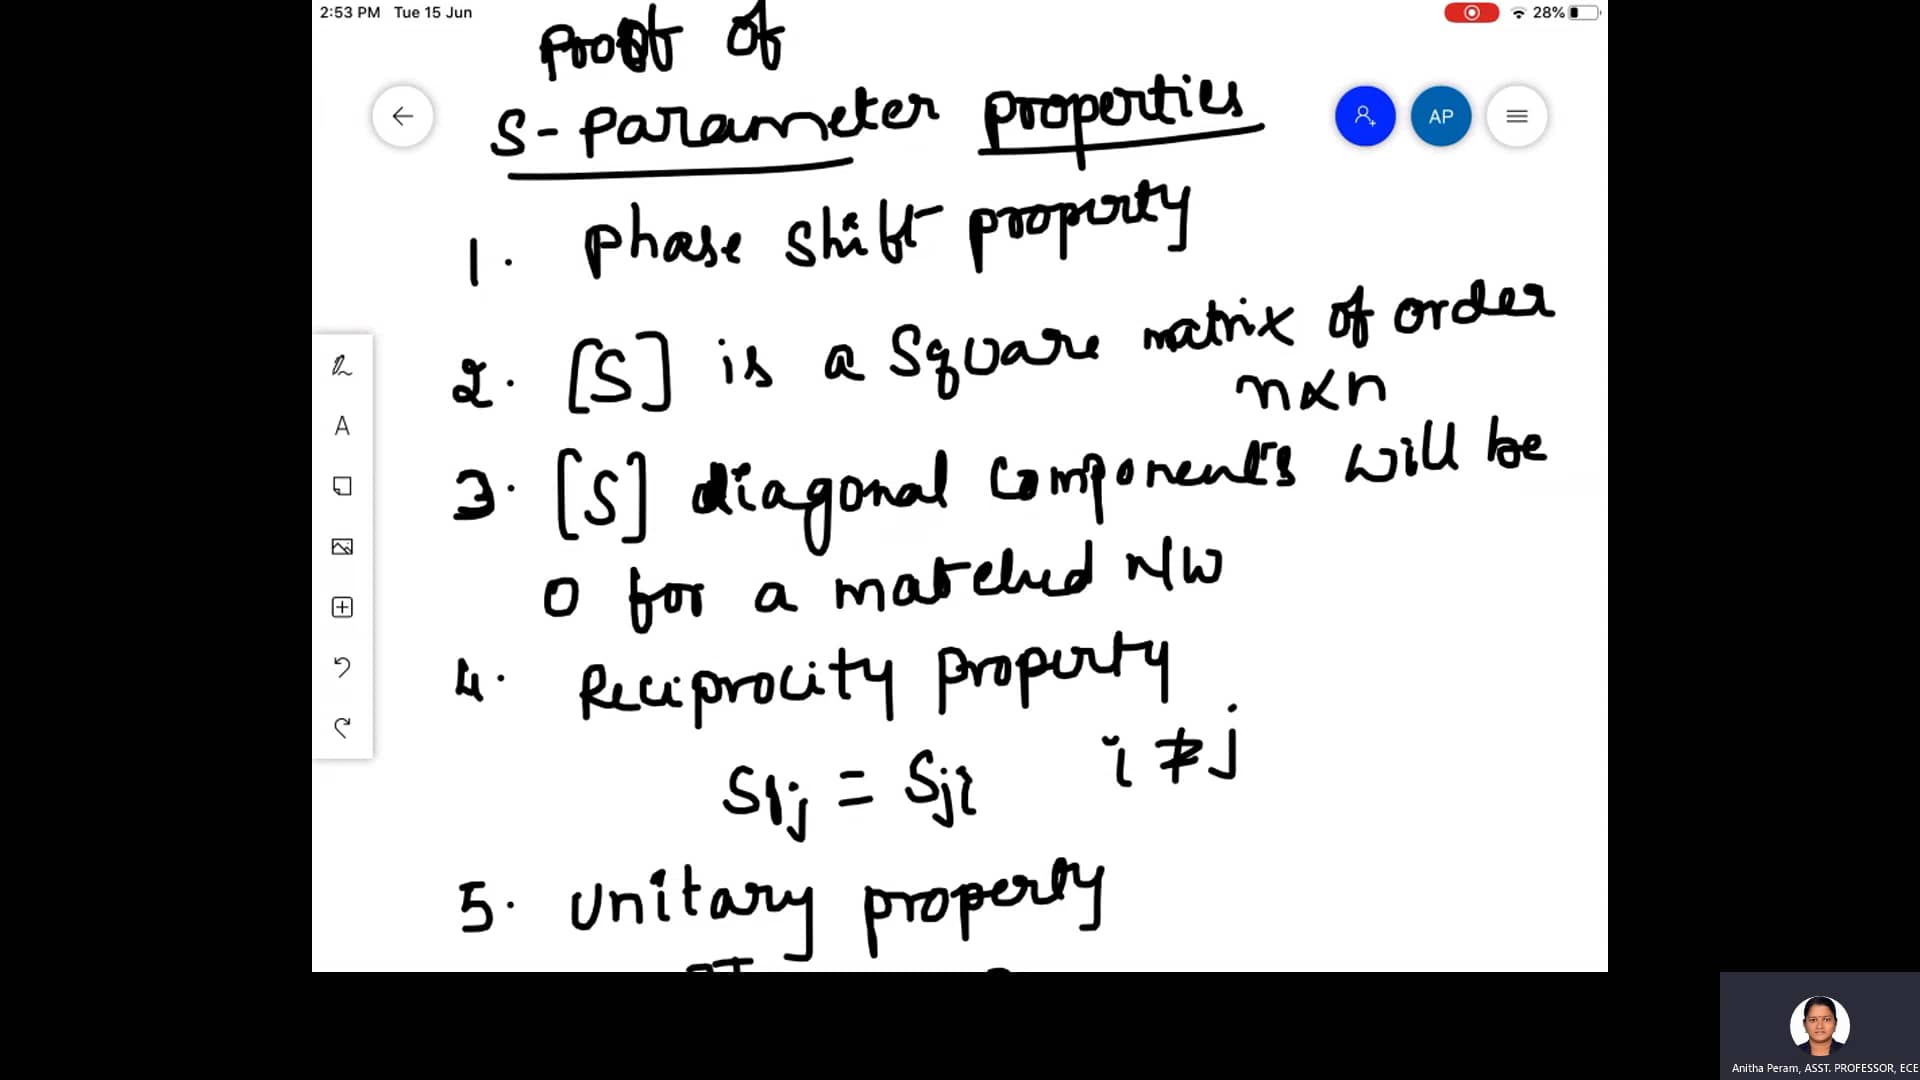 2:53 PM Tue 15 Jun
28%
Proof of
S-Parameter properties
AP
1. Phase shift property
2. [S] is a Square matrix of order
n×n
A
3. [S] diagonal components will be
0 for a matched N/W
4. Reciprocity property
Sij = Sji i ≠ j
5. Unitary property
Anitha Peram, ASST. PROFESSOR, ECE